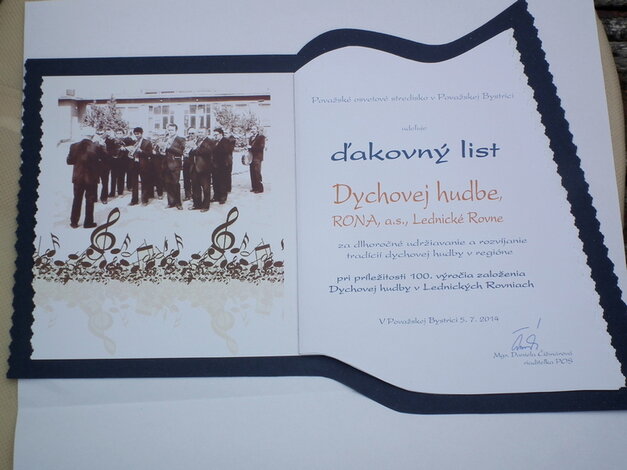 Považské osvetové stredisko v Považskej Bystrici
udeľuje
ďakovný list
Dychovej hudbe,
RONA, a.s., Lednické Rovne
za dlhoročné udržiavanie a rozvíjanie
tradícií dychovej hudby v regióne
pri príležitosti 100. výročia založenia
Dychovej hudby v Lednických Rovniach
V Považskej Bystrici 5. 7. 2014
Mgr. Daniela Čižmárová
riaditeľka POS